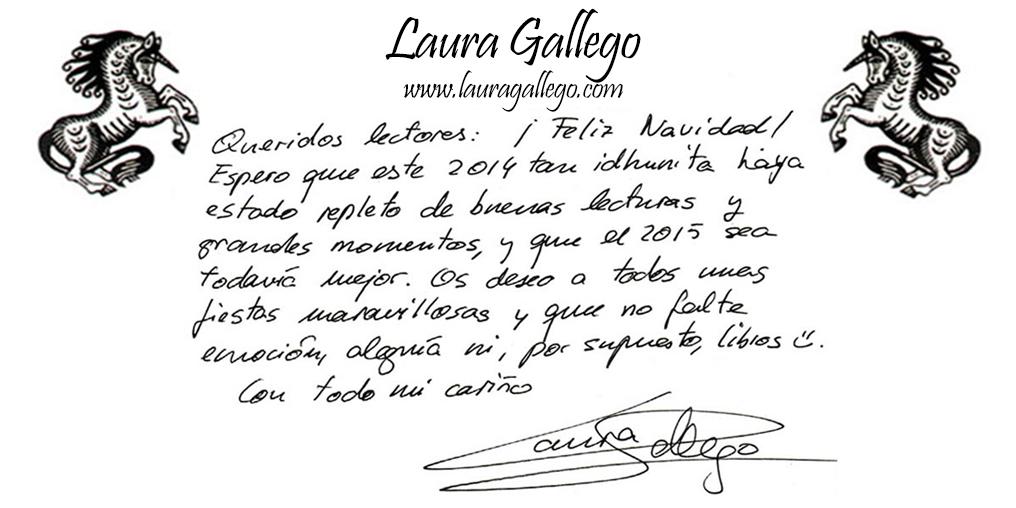 Laura Gallego
www.lauragallego.com
Queridos lectores: ¡Feliz Navidad!
Espero que este 2014 tan idhunita haya
estado repleto de buenas lecturas y
grandes momentos, y que el 2015 sea
todavía mejor. Os deseo a todos unas
fiestas maravillosas y que no falte
emoción, alegría ni, por supuesto, libros ☺.
Con todo mi cariño
Laura Gallego